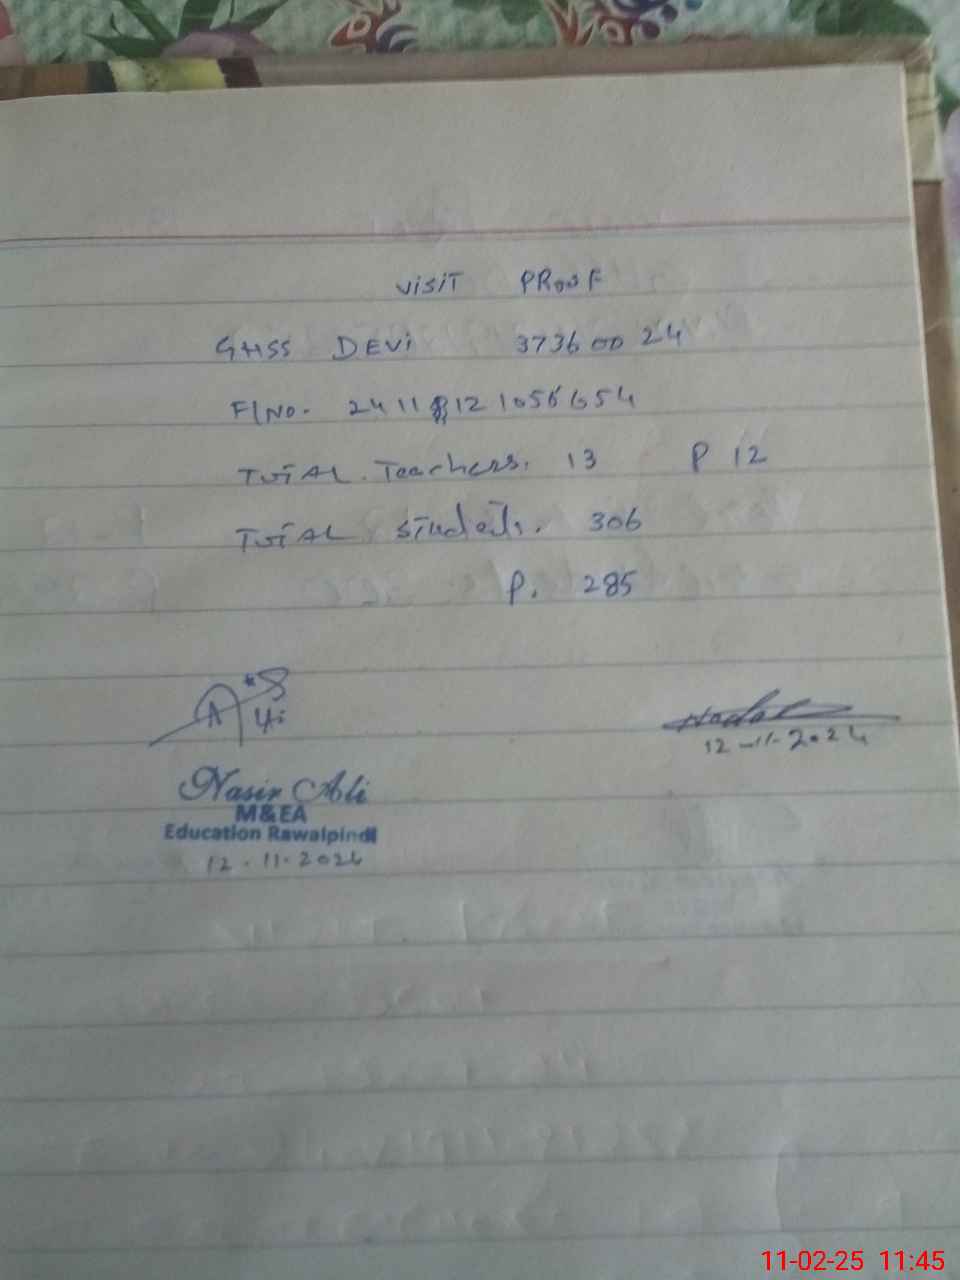 VISIT PROOF
GHSS DEVI 37360024
F/NO. 24111121056654
TOTAL. Teachers. 13 P 12
TOTAL Students. 306
P. 285
12-11-2024
Nasir Ali
M&EA
Education Rawalpindi
12.11.2024
11-02-25 11:45